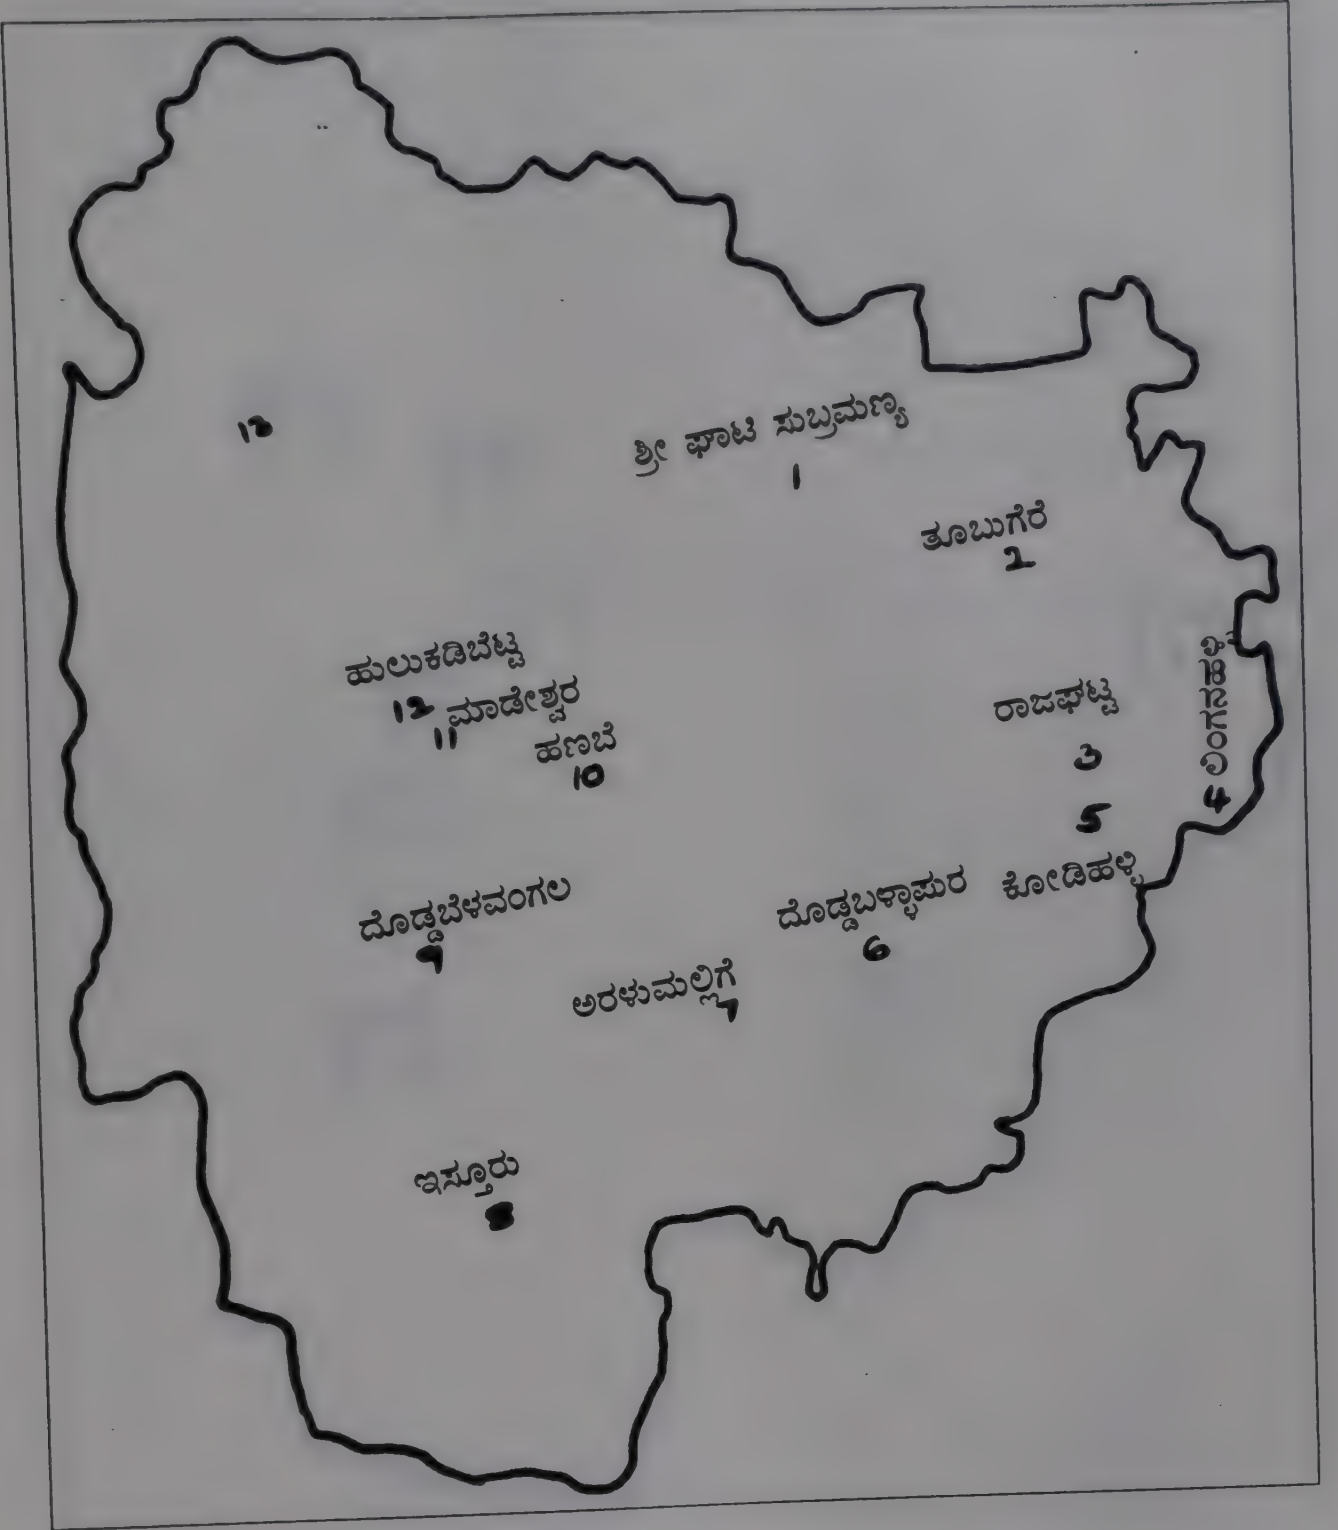 13
ಶ್ರೀ ಘಾಟಿ ಸುಬ್ರಮಣ್ಯ
1
ತೂಬುಗೆರೆ
2
ಹುಲುಕಡಿಬೆಟ್ಟ
12
ಮಾಡೇಶ್ವರ
11
ಹಣಬೆ
10
ರಾಜಘಟ್ಟ
3
ಲಿಂಗನಹಳ್ಳಿ
4
5
ಕೋಡಿಹಳ್ಳಿ
ದೊಡ್ಡಬಳ್ಳಾಪುರ
6
ದೊಡ್ಡಬೆಳವಂಗಲ
9
ಅರಳುಮಲ್ಲಿಗೆ
7
ಇಸ್ತೂರು
8